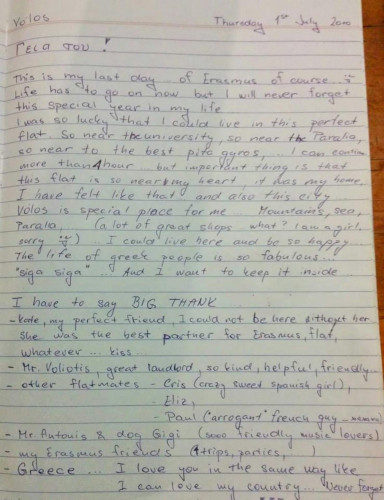 Volos Thursday 1st July 2010
Γεια σου !
This is my last day .. of Erasmus of course ..
Life has to go on now but I will never forget
this special year in my life
I was so lucky that I could live in this perfect
flat. So near the university, so near the Paralia,
so near to the best pita gyros, ... I can continue
more than 1 hour ... but important thing is that
this flat is so near my heart, it was my home.
I have felt like that and also this city
Volos is special place for me .. Mountains, sea,
Paralia... (a lot of great shops what? I am a girl,
sorry ) .. I could live here and be so happy ..
The life of greek people is so fabulous...
"siga siga" ... And I want to keep it inside
I have to say BIG THANK
- Kate, my perfect friend, I could not be here without her
She was the best partner for Erasmus, flat,
whatever ... kiss
- Mr. Voliotis, great landlord, so kind, helpful, friendly...
- other flatmates - Cris (crazy sweet spanish girl),
- Eliz,
- Paul ("arrogant" french guy ...)
- Mr. Antonis & dog Gigi (sooo friendly music lovers)
- my Erasmus friends (trips, parties, )
- Greece ... I love you in the same way like
I can love my country... Never forget